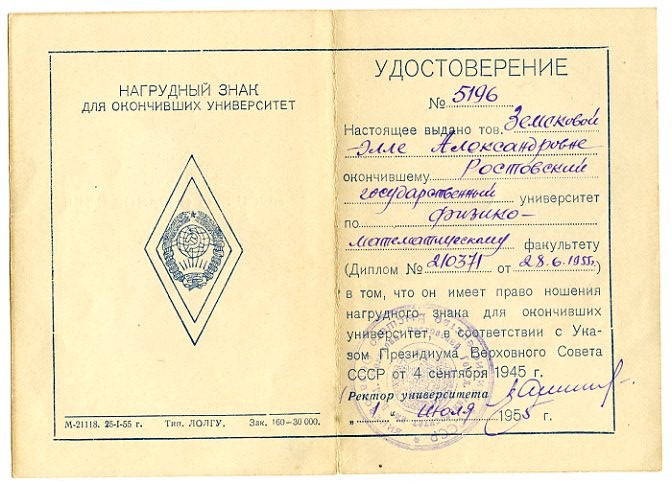 НАГРУДНЫЙ ЗНАК
ДЛЯ ОКОНЧИВШИХ УНИВЕРСИТЕТ
М-21118. 25-I-55 г. Тип. ЛОЛГУ. Зак. 160—30 000.
УДОСТОВЕРЕНИЕ
№ 5196
Настоящее выдано тов. Земсковой
Элле Александровне
окончившему Ростовский
государственный университет
по физико-
математическому факультету
(Диплом № 210371 от 28.6.1955г.)
в том, что он имеет право ношения
нагрудного знака для окончивших
университет, в соответствии с Ука-
зом Президиума Верховного Совета
СССР от 4 сентября 1945 г.
Ректор университета
„1 " июля 1955 г.